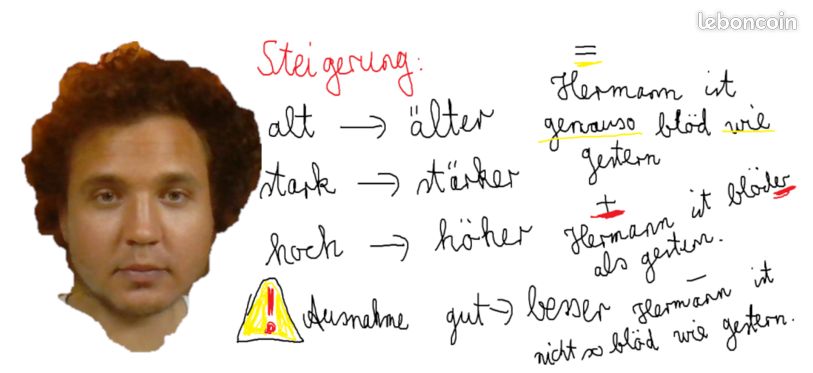 leboncoin
Steigerung:
alt → älter
stark → stärker
hoch → höher
! Ausnahme gut → besser
=
Hermann ist
genauso blöd wie
gestern
+
Hermann ist blöder
als gestern.
−
Hermann ist
nicht so blöd wie gestern.